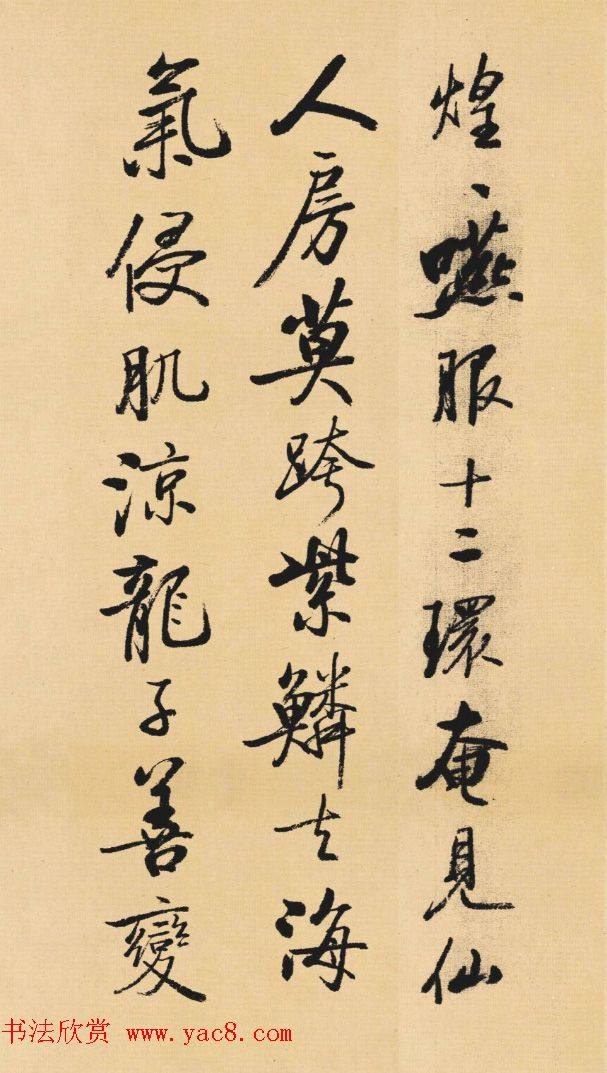 煌〻嚥服十二環奄見仙
人房莫跨紫鱗去海
氣侵肌涼龍子善變
书法欣赏 www.yac8.com